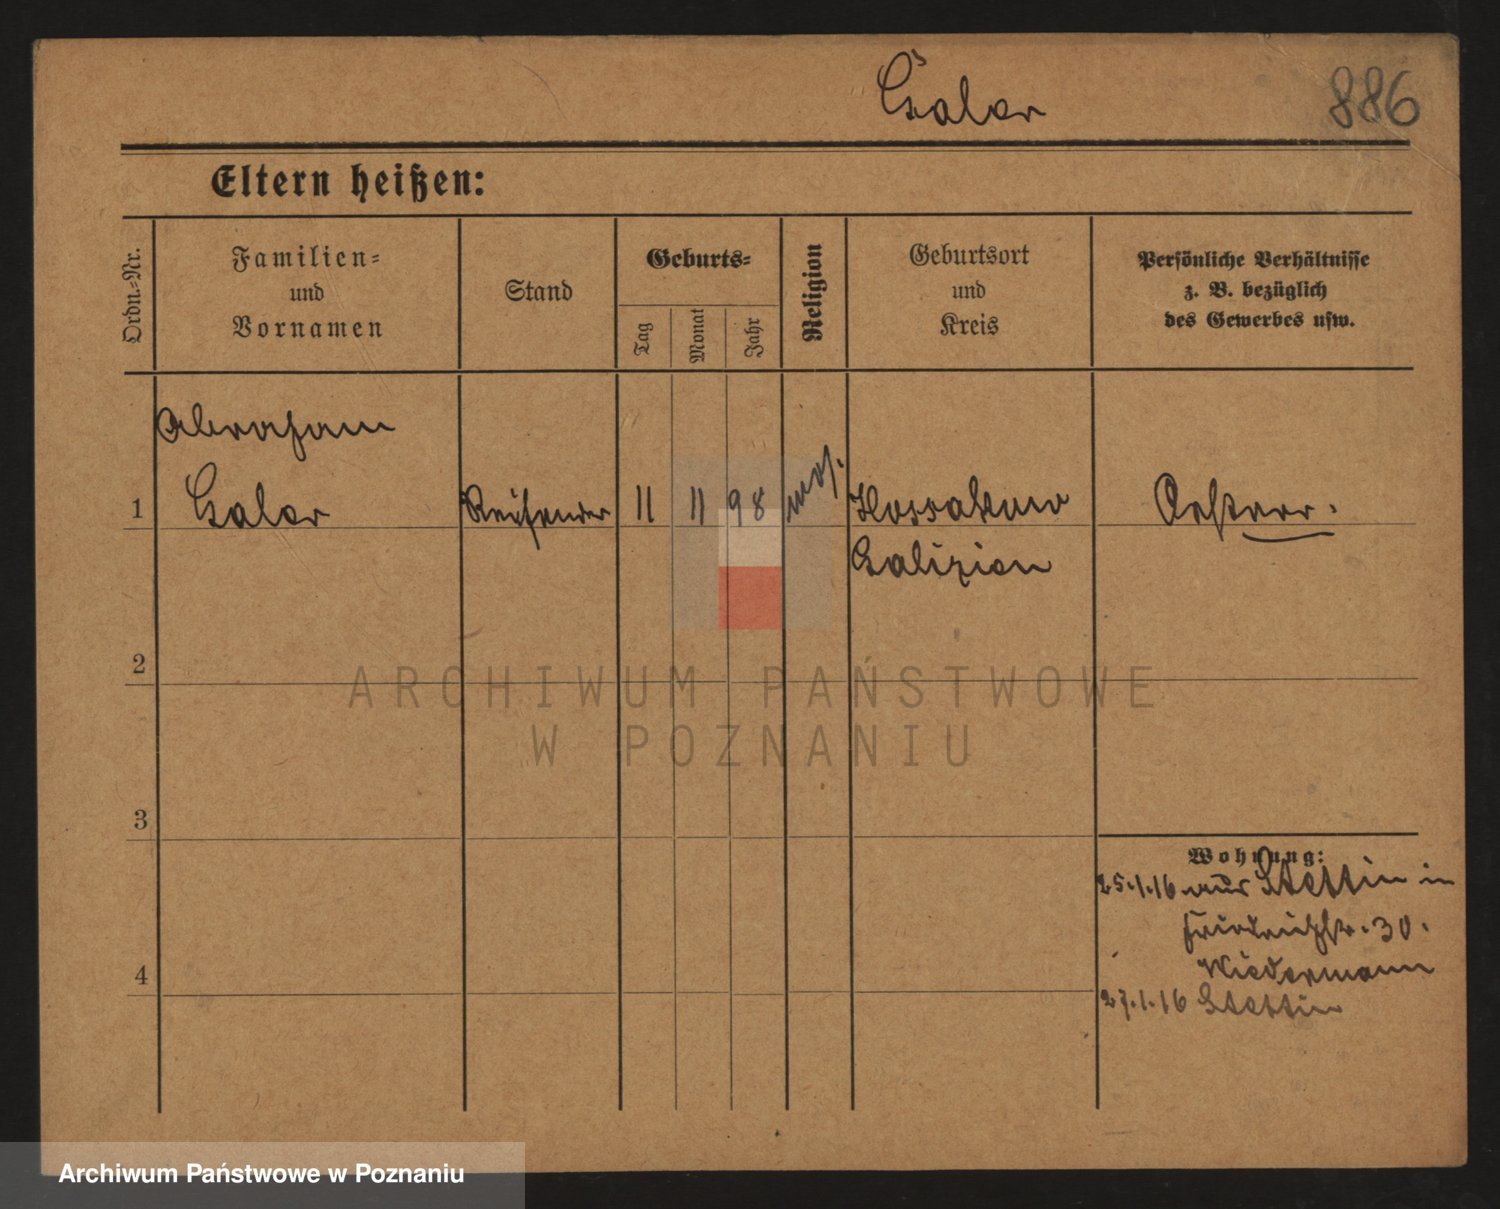 Galer
886
Eltern heißen:
Ordn.-Nr.
Familien-
und
Vornamen
Stand
Geburts-
Tag
Monat
Jahr
Religion
Geburtsort
und
Kreis
Persönliche Verhältnisse
z. B. bezüglich
des Gewerbes usw.
Abraham
1 Galer Reisender 11 11 98 mos. Kossakow Oesterr.
Galizien
2
3
4
Wohnung:
25.1.16 aus Stettin in
Friedrichstr. 30.
Wiedermann
27.1.16 Stettin
ARCHIWUM PAŃSTWOWE
W POZNANIU
Archiwum Państwowe w Poznaniu